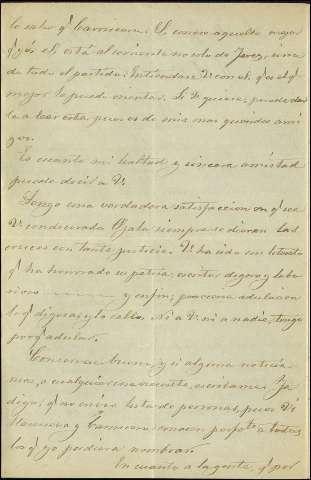 lo sabe q.e Carnicero. Si conoce aquello mejor
q.e yo él, está al corriente no solo de Jerez, sino
de todo el partido. Entiéndase V. con él, q.e es el q.e
mejor le puede orientar. Si V. quiere, puede dar
le a leer esta, pues es de mis mas queridos ami
gos.
Es cuanto mi lealtad y sincera amistad
puede decir a V.
Tengo una verdadera satisfaccion en q.e sea
V. condecorado. Ojalá siempre se dieran las
cruces con tanta justicia. V. ha sido un
q.e ha honrado su patria, escritor digno y labo
rioso y en fin, parecería adulacion
lo q.e dijera, y lo callo. Ni a V. ni a nadie, tengo
por q.e adular.
Conservarse bueno, y si alguna noticia
mas, o cualquier cosa necesita, escríbame. Ya
digo, q.e no envio lista de personas, pues Vi
llanueva y Carnicero conocen perfecte a todos
los q.e yo pudiera nombrar.
En cuanto a la gente, q.e por